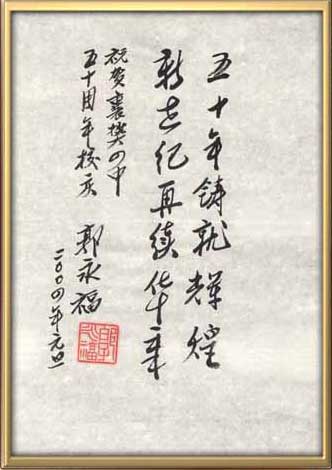 五十年铸就辉煌
新世纪再续华章
祝贺襄樊四中
五十周年校庆
郭永福
二〇〇四年元旦